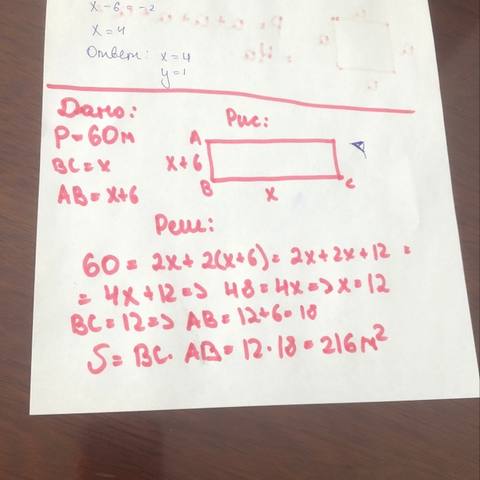 x-6=-2
x=4
Ответ: x=4
y=1
Дано:
P=60м
BC=x
AB=x+6
Рис:
A
x+6
B
x
C
Реш:
60 = 2x+2(x+6)= 2x+2x+12 =
= 4x+12=> 48=4x=>x=12
BC=12=> AB=12+6=18
S= BC· AB= 12·18=216м²